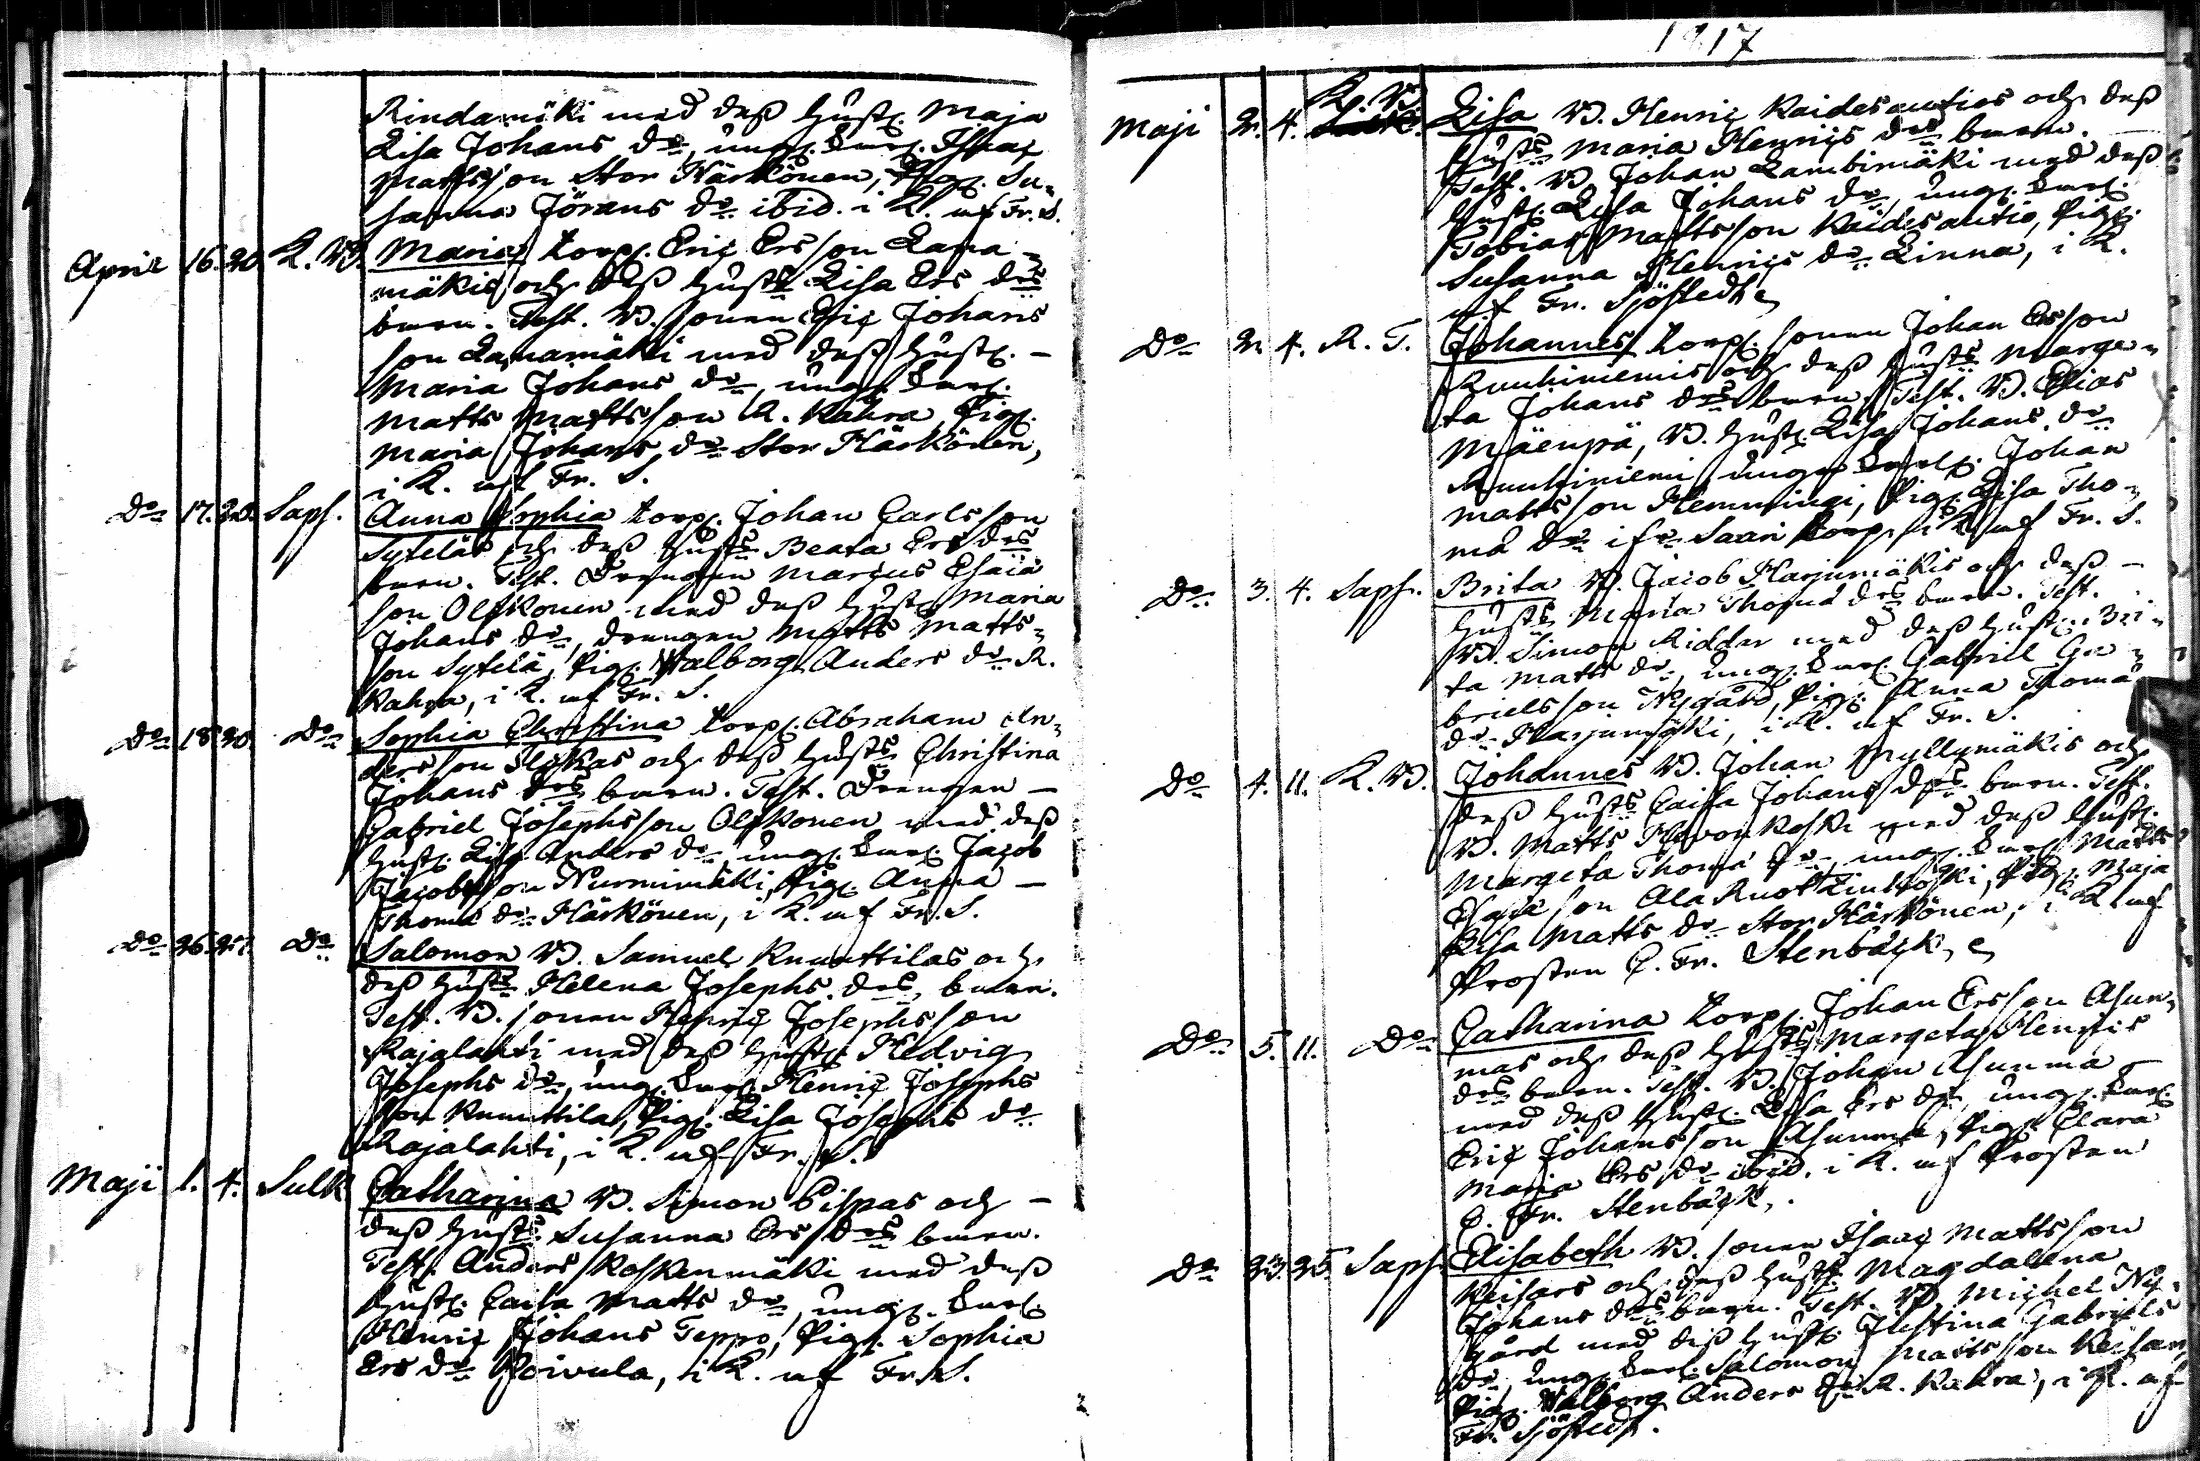 Rindamäki med dess hustr. Maja
Lisa Johans dr, ung. karl. Isaac
Mattsson Stor Härkönen, Pig. Su-
sanna Jörans dr. ibid. i K. af Fr. S.
April 16. 20. K. B. Maria Torp. Eric Ersson Lana-
mäkis och dess hustrs Lisa Ers drs
barn. Test. B. sonen Eric Johans
son Lanamäki med dess hustr. –
Maria Johans dr, ung. karl.
Matts Mattsson R. Kahra, Pig.
Maria Johans dr Stor Härkönen,
i K. af Fr. S.
Do 17. 20. Saps. Anna Sophia Torp. Johan Carlsson
Syteläs och dess hustrs Beata Ers drs
barn. Test. Drengen Marcus Esaia
son Olkkonen med dess hustr. Maria
Johans dr, drengen Matts Matts-
son Sytelä, Pig. Walborg Anders dr R.
Kahra, i K. af Fr. S.
Do 18. 20. Do Sophia Christina Torp. Abraham An-
dersson och dess hustrs Christina
Johans drs barn. Test. Drengen –
Gabriel Josephsson Olkkonen med dess
hustr. Lisa Anders dr, ung. karl. Jacob
Jacobsson Nurmimäki, Pig. Anna –
Thoma dr Härkönen, i K. af Fr. S.
Do 26. 27. Do Salomon B. Samuel Knuuttilas och
dess hustrs Helena Josephs drs barn.
Test. B. sonen Henric Josephsson
Rajalahti med dess hustr. Hedvig
Josephs dr, ung. karl. Henric Josephs
son Knuuttila, Pig. Lisa Josephs dr
Rajalahti, i K. af Fr. S.
Maji 1. 4. Sulk. Catharina B. Simon Pispas och –
dess hustrs Susanna Ers drs barn.
Test. Anders Koskenmäki med dess
hustr. Caisa Matts dr, ung. karl.
Henric Johans Teppo, Pig. Sophia
Ers dr Koivula, i K. af Fr. S.
1817
Maji 2. 4. K. B. Lisa B. Henric Kaidesoutios och dess
hustrs Maria Henrics drs barn. –
Test. B. Johan Lambimäki med dess
hustr. Lisa Johans dr, ung. karl.
Tobias Mattsson Kaidesoutio, Pig.
Susanna Henrics dr Linna, i K.
af Fr. Sjöstedt
Do 2. 4. R. T. Johannes Torp. sonen Johan Ersson
Ruuhiniemis och dess hustrs Marge-
ta Johans drs barn. Test. B. Elias
Mäenpä, B. hustr. Lisa Johans dr
Ruuhiniemi, unga karl. Johan
Mattsson Hemmingi, Pig. Lisa Tho-
mä dr Saari Torp. i K. af Fr. S.
Do 3. 4. Saps. Brita B. Jacob Harjumäkis och dess –
hustrs Maria Thomä drs barn. Test.
B. Simon Riddar med dess hustr. Bri-
ta Matts dr, ung. karl. Gabriel Ga-
brielsson Nygård, Pig. Anna Thomä
dr Harjumäki, i K. af Fr. S.
Do 4. 11. K. B. Johannes B. Johan Myllymäkis och
dess hustrs Caisa Johans drs barn. Test.
B. Matts Hevonkoski med dess hustr.
Margeta Thomä dr, ung. karl. Matts
Esaia son Ala Ruotzinkoski, Pig. Maja
Lisa Matts dr Stor Härkönen, i K. af
Prosten C. Fr. Stenbäck,
Do 5. 11. Do Catharina Torp. Johan Ersson Asun-
mas och dess hustrs Margeta Henrics
drs barn. Test. B. Johan Asunma –
med dess hustr. Lisa Ers dr, ung. karl.
Eric Johansson Asunma, Pig. Clara
Maria Ers dr ibid. i K. af Prosten
C. Fr. Stenbäck.
Do 23. 25. Saps. Elisabeth B. sonen Isaac Mattsson
Keisars och dess hustrs Magdalena
Johans drs barn. Test. B. Michel Ny-
gård med dess hustr. Justina Gabriels
dr, ung. karl. Salomon Mattsson Keisar,
Pig. Walborg Anders dr R. Kahra, i K. af
Fr. Sjöstedt.